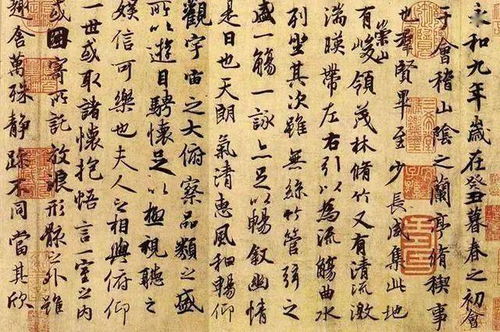 永和九年歲在癸丑暮春之初會
于會稽山陰之蘭亭脩禊事
也群賢畢至少長咸集此地
有崇山峻領茂林脩竹又有清流激
湍暎帶左右引以為流觴曲水
列坐其次雖無絲竹管弦之
盛一觴一詠亦足以暢敘幽情
是日也天朗氣清惠風和暢仰
觀宇宙之大俯察品類之盛
所以遊目騁懷足以極視聽之
娛信可樂也夫人之相與俯仰
一世或取諸懷抱悟言一室之內
或因寄所託放浪形骸之外雖
趣舍萬殊靜躁不同當其欣